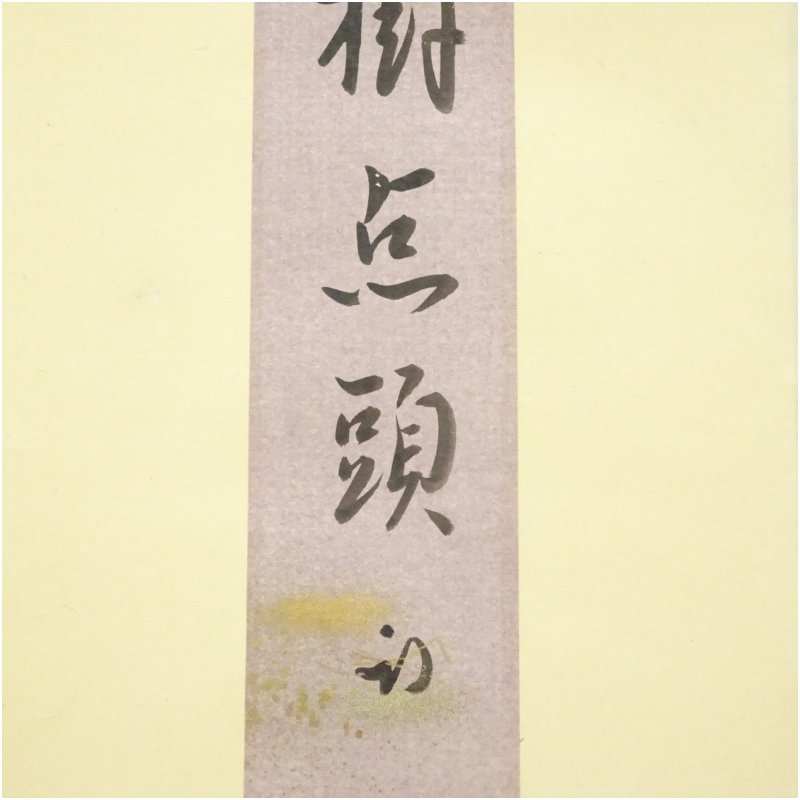 樹点頭